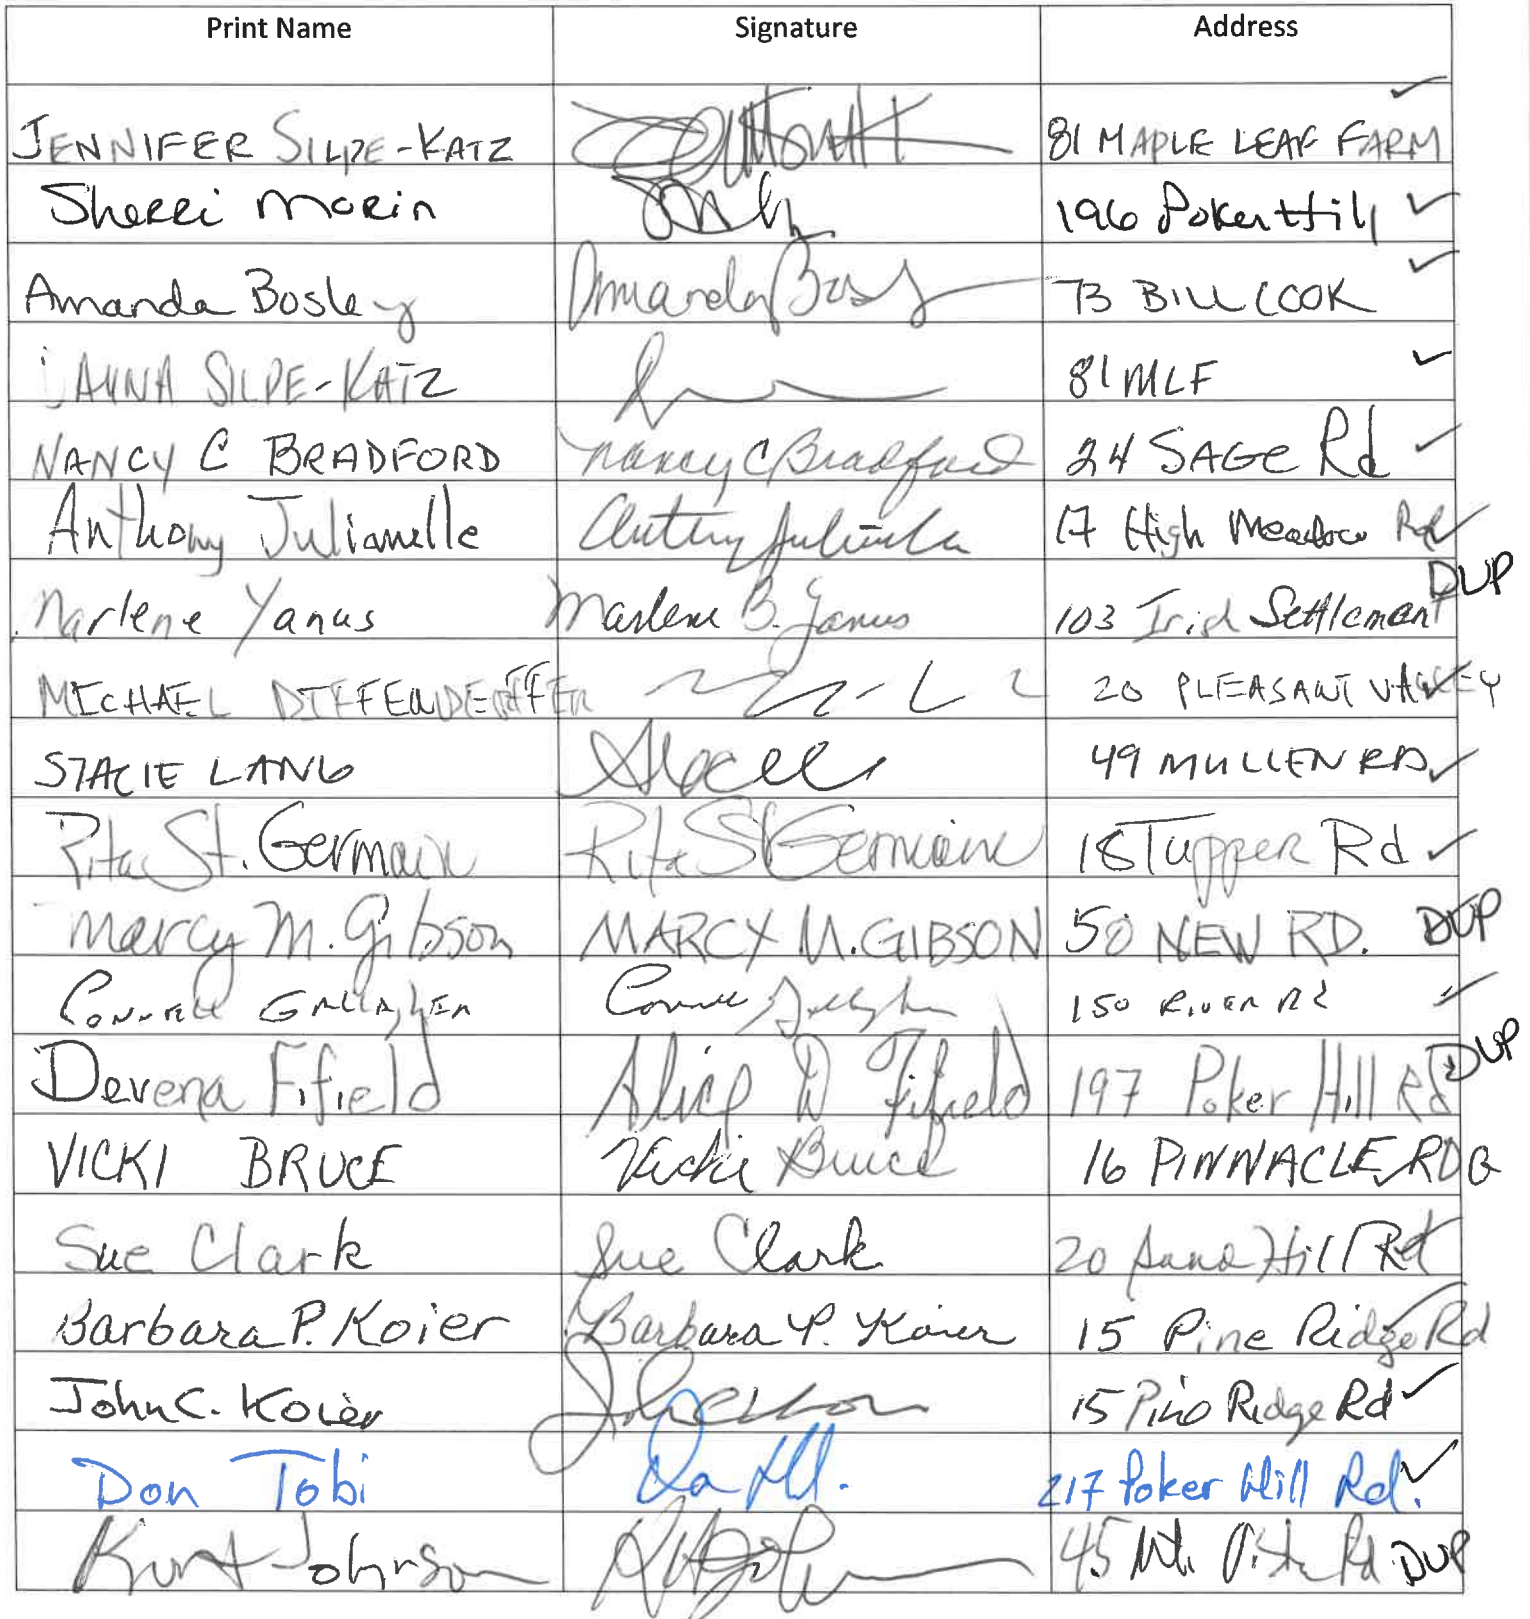 Print Name Signature Address
JENNIFER SILPE-KATZ 81 MAPLE LEAF FARM ✓
Sherri Morin 196 Poker Hill ✓
Amanda Bosley Amanda Bos 73 BILL COOK ✓
SILPE-KATZ 81 MLF ✓
NANCY C BRADFORD Nancy C Bradford 24 SAGE Rd ✓
Anthony Julianelle 17 High Meadow Rd ✓
Marlene Yanus Marlene B. Yanus 103 Irish Settlement DUP
MICHAEL DIFFENDERFFER 20 PLEASANT VALLEY ✓
STACIE LANG 49 MULLEN RD ✓
Rita St. Germain Rita St Germain 18 Tupper Rd ✓
Marcy M. Gibson MARCY M. GIBSON 50 NEW RD. DUP
GALLAGHER 150 River Rd ✓
Devena Fifield Alice D Fifield 197 Poker Hill Rd DUP
VICKI BRUCE Vicki Bruce 16 PINNACLE RDG ✓
Sue Clark Sue Clark 20 Hill Rd ✓
Barbara P. Koier Barbara P. Koier 15 Pine Ridge Rd ✓
John C. Koier 15 Pine Ridge Rd ✓
Don Tobi 217 Poker Hill Rd. ✓
Kurt Johnson 45 Mt. Vista Rd DUP